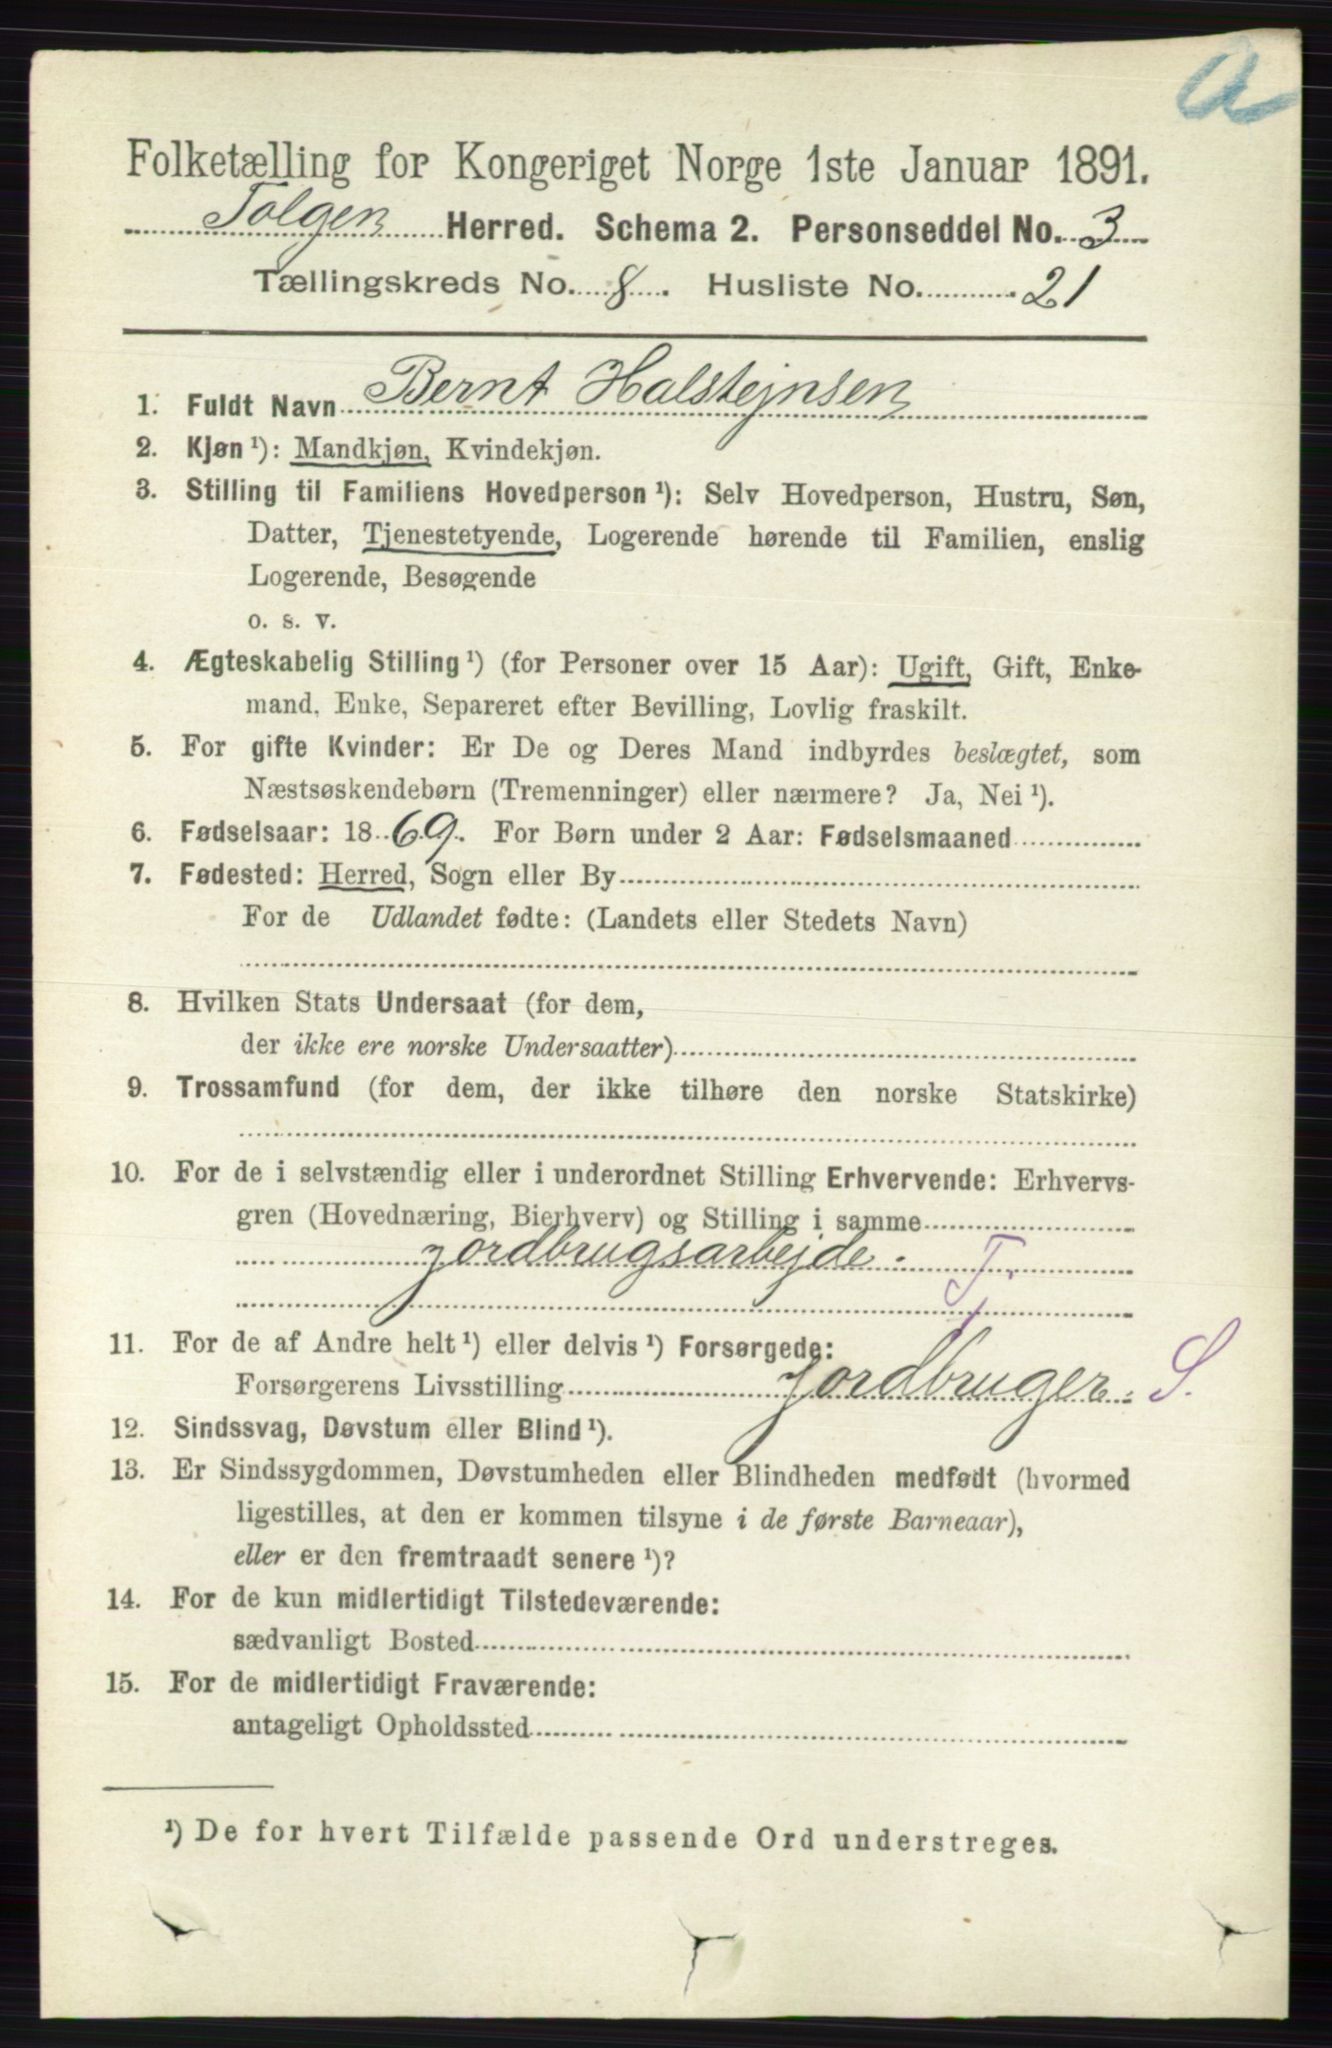 a
Folketælling for Kongeriget Norge 1ste Januar 1891.
Tolgen Herred. Schema 2. Personseddel No. 3
Tællingskreds No. 8. Husliste No. 21
1. Fuldt Navn Bernt Halstejnsen
2. Kjøn ¹): Mandkjøn, Kvindekjøn.
3. Stilling til Familiens Hovedperson ¹): Selv Hovedperson, Hustru, Søn,
Datter, Tjenestetyende, Logerende hørende til Familien, enslig
Logerende, Besøgende
o. s. v.
4. Ægteskabelig Stilling ¹) (for Personer over 15 Aar): Ugift, Gift, Enke-
mand, Enke, Separeret efter Bevilling, Lovlig fraskilt.
5. For gifte Kvinder: Er De og Deres Mand indbyrdes beslægtet, som
Næstsøskendebørn (Tremenninger) eller nærmere? Ja, Nei ¹).
6. Fødselsaar: 1869. For Børn under 2 Aar: Fødselsmaaned
7. Fødested: Herred, Sogn eller By
For de Udlandet fødte: (Landets eller Stedets Navn)
8. Hvilken Stats Undersaat (for dem,
der ikke ere norske Undersaatter)
9. Trossamfund (for dem, der ikke tilhøre den norske Statskirke)
10. For de i selvstændig eller i underordnet Stilling Erhvervende: Erhvervs-
gren (Hovednæring, Bierhverv) og Stilling i samme
jordbrugsarbejde. Tj
11. For de af Andre helt ¹) eller delvis ¹) Forsørgede:
Forsørgerens Livsstilling Jordbruger. S.
12. Sindssvag, Døvstum eller Blind ¹).
13. Er Sindssygdommen, Døvstumheden eller Blindheden medfødt (hvormed
ligestilles, at den er kommen tilsyne i de første Barneaar),
eller er den fremtraadt senere ¹)?
14. For de kun midlertidigt Tilstedeværende:
sædvanligt Bosted
15. For de midlertidigt Fraværende:
antageligt Opholdssted
¹) De for hvert Tilfælde passende Ord understreges.